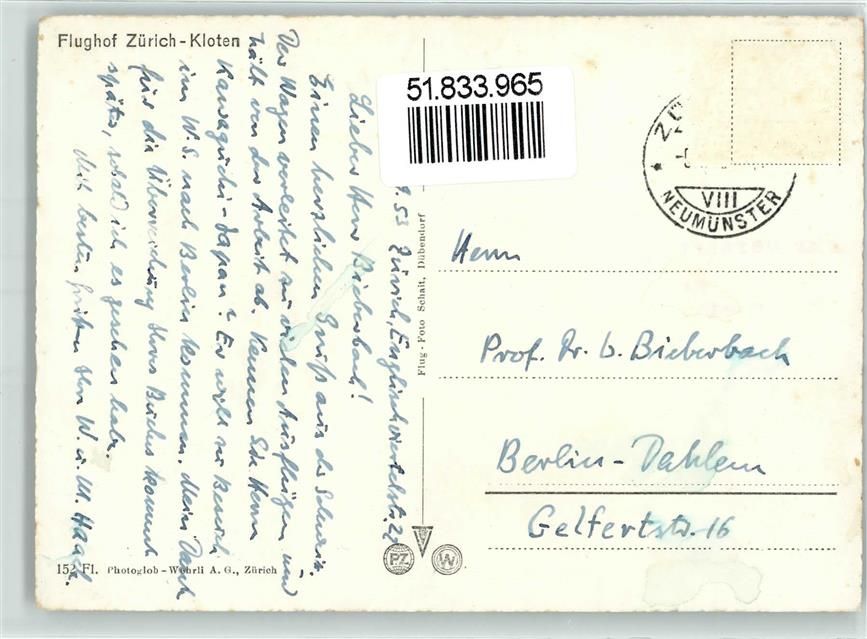 Flughof Zürich-Kloten
51.833.965
9.53 Zürich, Englischviertelstr. 22
Lieber Herr Bieberbach!
Einen herzlichen Gruß aus der Schweiz.
Der Wagen verleitet zu vielen Ausflügen und
hält von der Arbeit ab. Kennen Sie Herrn
Kawaguchi-Japan? Er will zu Besuch
im W.S. nach Berlin kommen. Mein Dank
für die Übersendung Ihres Buches kommt
später, sobald ich es gesehen habe.
Mit besten Grüßen Ihr W. u. M.
152 Fl. Photoglob-Wehrli A. G., Zürich
Flug-Foto Schait, Dübendorf
PZ
W
VIII
NEUMÜNSTER
Herrn
Prof. Dr. L. Bieberbach
Berlin-Dahlem
Gelfertstr. 16